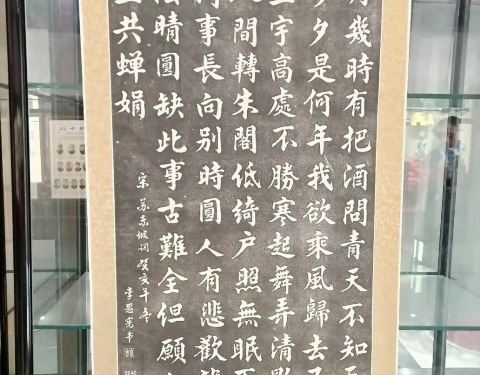 月幾時有把酒問青天不知天
夕是何年我欲乘風歸去又
宇高處不勝寒起舞弄清影
間轉朱閣低綺户照無眠不
何事長向別時圓人有悲歡離
陰晴圓缺此事古難全但願
里共嬋娟
宋苏东坡词癸亥年冬